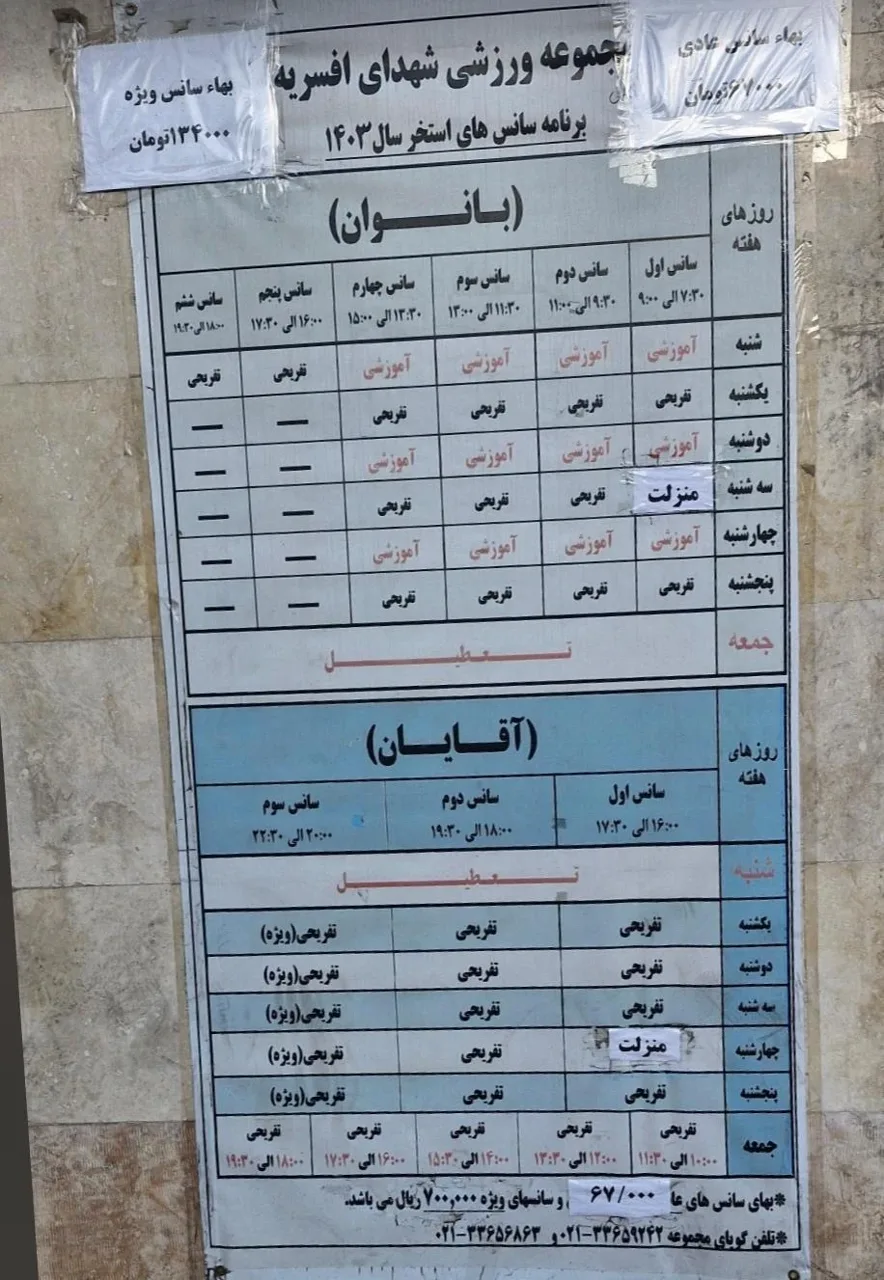 بهاء سانس عادی
۶۷۰۰۰تومان
مجموعه ورزشی شهدای افسریه
بهاء سانس ویژه
۱۳۴۰۰۰تومان
برنامه سانس های استخر سال۱۴۰۳
روزهای هفته
(بانوان)
سانس اول سانس دوم سانس سوم سانس چهارم سانس پنجم سانس ششم
۷:۳۰ الی ۹:۰۰ ۹:۳۰ الی ۱۱:۰۰ ۱۱:۳۰ الی ۱۳:۰۰ ۱۳:۳۰ الی ۱۵:۰۰ ۱۶:۰۰ الی ۱۷:۳۰ ۱۸:۰۰ الی ۱۹:۳۰
شنبه آموزشی آموزشی آموزشی آموزشی تفریحی تفریحی
یکشنبه تفریحی تفریحی تفریحی تفریحی — —
دوشنبه آموزشی آموزشی آموزشی آموزشی — —
سه شنبه منزلت تفریحی تفریحی تفریحی — —
چهارشنبه آموزشی آموزشی آموزشی آموزشی — —
پنجشنبه تفریحی تفریحی تفریحی تفریحی — —
جمعه تعطیل
روزهای هفته
(آقایان)
سانس اول سانس دوم سانس سوم
۱۶:۰۰ الی ۱۷:۳۰ ۱۸:۰۰ الی ۱۹:۳۰ ۲۰:۰۰ الی ۲۲:۳۰
شنبه تعطیل
یکشنبه تفریحی تفریحی تفریحی(ویژه)
دوشنبه تفریحی تفریحی تفریحی(ویژه)
سه شنبه تفریحی تفریحی تفریحی(ویژه)
چهارشنبه منزلت تفریحی تفریحی(ویژه)
پنجشنبه تفریحی تفریحی تفریحی(ویژه)
جمعه تفریحی تفریحی تفریحی تفریحی تفریحی
۱۰:۰۰ الی ۱۱:۳۰ ۱۲:۰۰ الی ۱۳:۳۰ ۱۴:۰۰ الی ۱۵:۳۰ ۱۶:۰۰ الی ۱۷:۳۰ ۱۸:۰۰ الی ۱۹:۳۰
*بهای سانس های عا ۶۷/۰۰۰ و سانسهای ویژه ۷۰۰,۰۰۰ ریال می باشد.
*تلفن گویای مجموعه ۳۳۶۵۹۲۴۲-۰۲۱ و ۳۳۶۵۶۸۶۳-۰۲۱